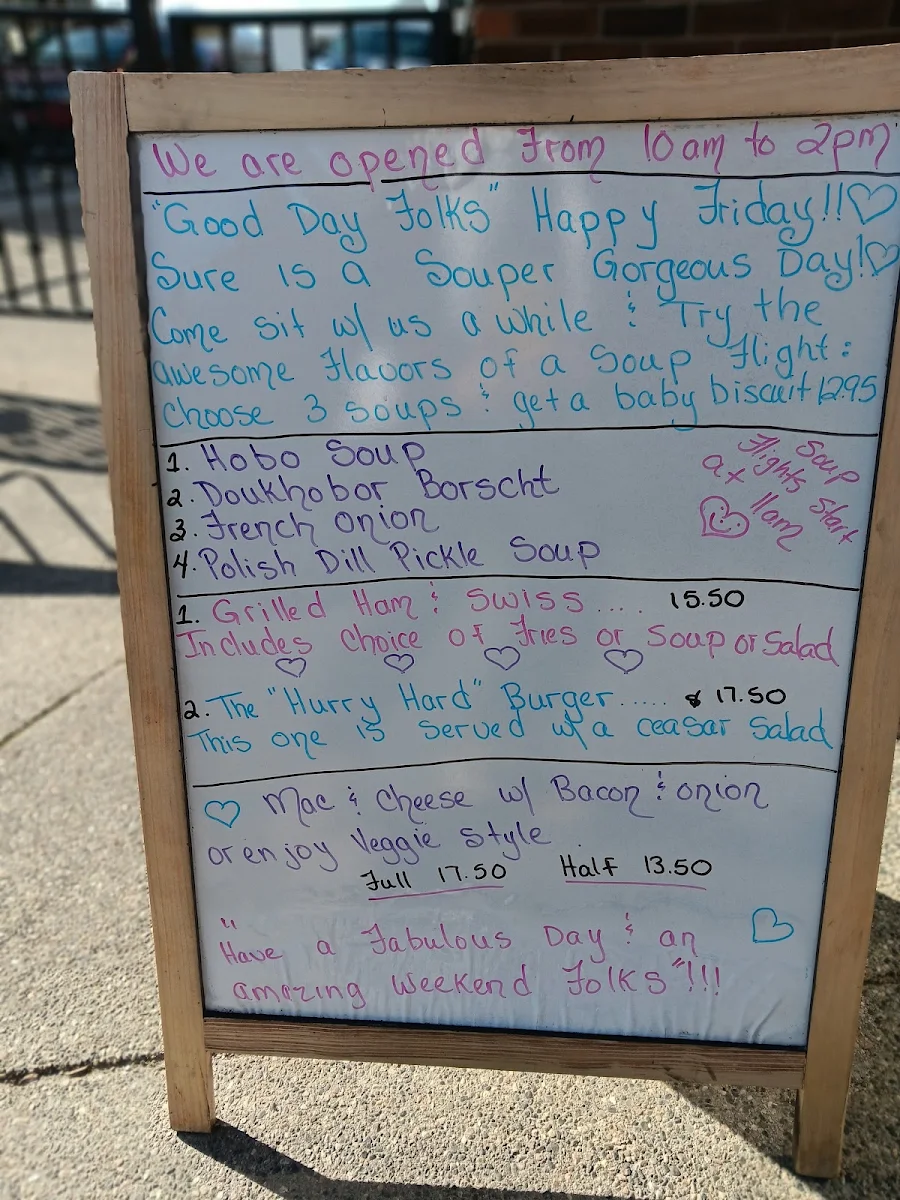 We are opened From 10am to 2pm
"Good Day Folks" Happy Friday!!♡
Sure is a Souper Gorgeous Day!♡
Come sit w/ us a while & Try the
awesome Flavors of a Soup Flight:
Choose 3 soups & get a baby biscuit 12.95
1. Hobo Soup
2. Doukhobor Borscht
3. French Onion
4. Polish Dill Pickle Soup
Soup
Flights Start
at 11am
1. Grilled Ham & Swiss.... 15.50
Includes Choice of Fries or Soup or Salad
2. The "Hurry Hard" Burger..... $ 17.50
This one is Served w/ a ceasar Salad
♡ Mac & Cheese w/ Bacon & onion
or enjoy Veggie Style
Full 17.50 Half 13.50
"Have a Fabulous Day & an
amazing Weekend Folks"!!!